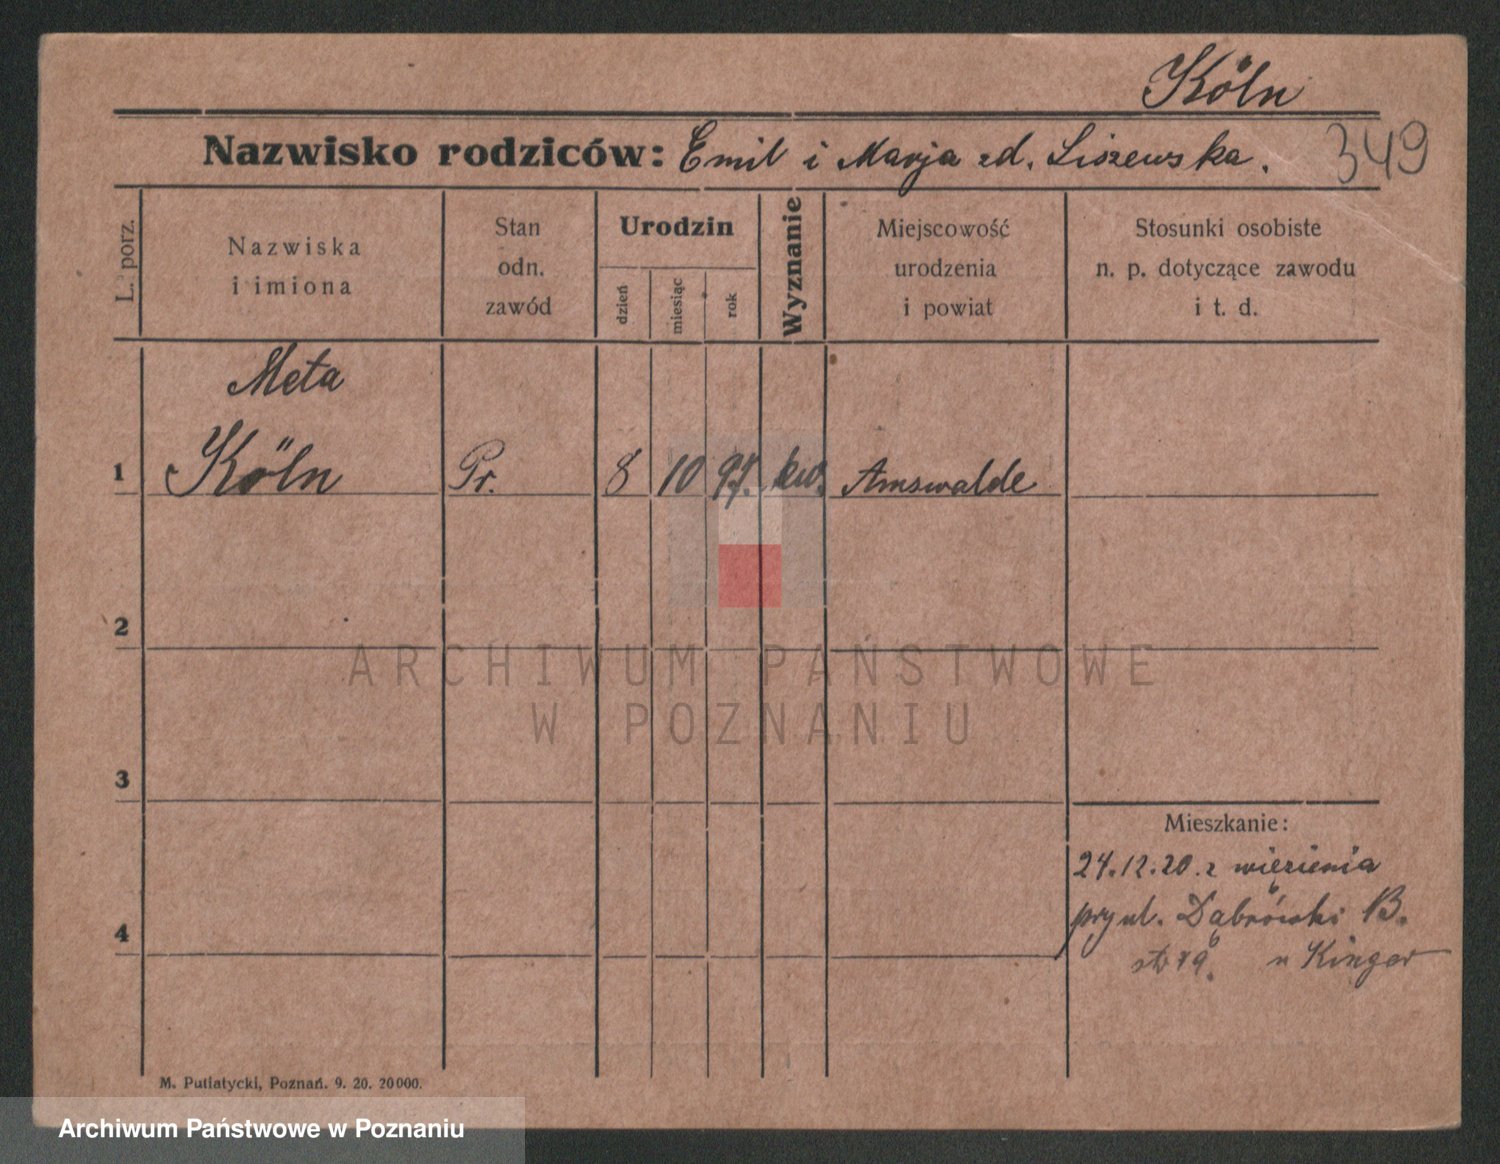 Köln
349
Nazwisko rodziców: Emil i Marja zd. Liszewska.
L. porz.
Nazwiska
i imiona
Stan
odn.
zawód
Urodzin
dzień
miesiąc
rok
Wyznanie
Miejscowość
urodzenia
i powiat
Stosunki osobiste
n. p. dotyczące zawodu
i t. d.
Meta
1 Köln Pr. 8 10 97. ew. Arnswalde
2
ARCHIWUM PAŃSTWOWE
W POZNANIU
3
Mieszkanie:
24.12.20. z więzienia
4
przy ul. Dąbrówki B.
M. Putiatycki, Poznań. 9. 20. 20000.
Archiwum Państwowe w Poznaniu